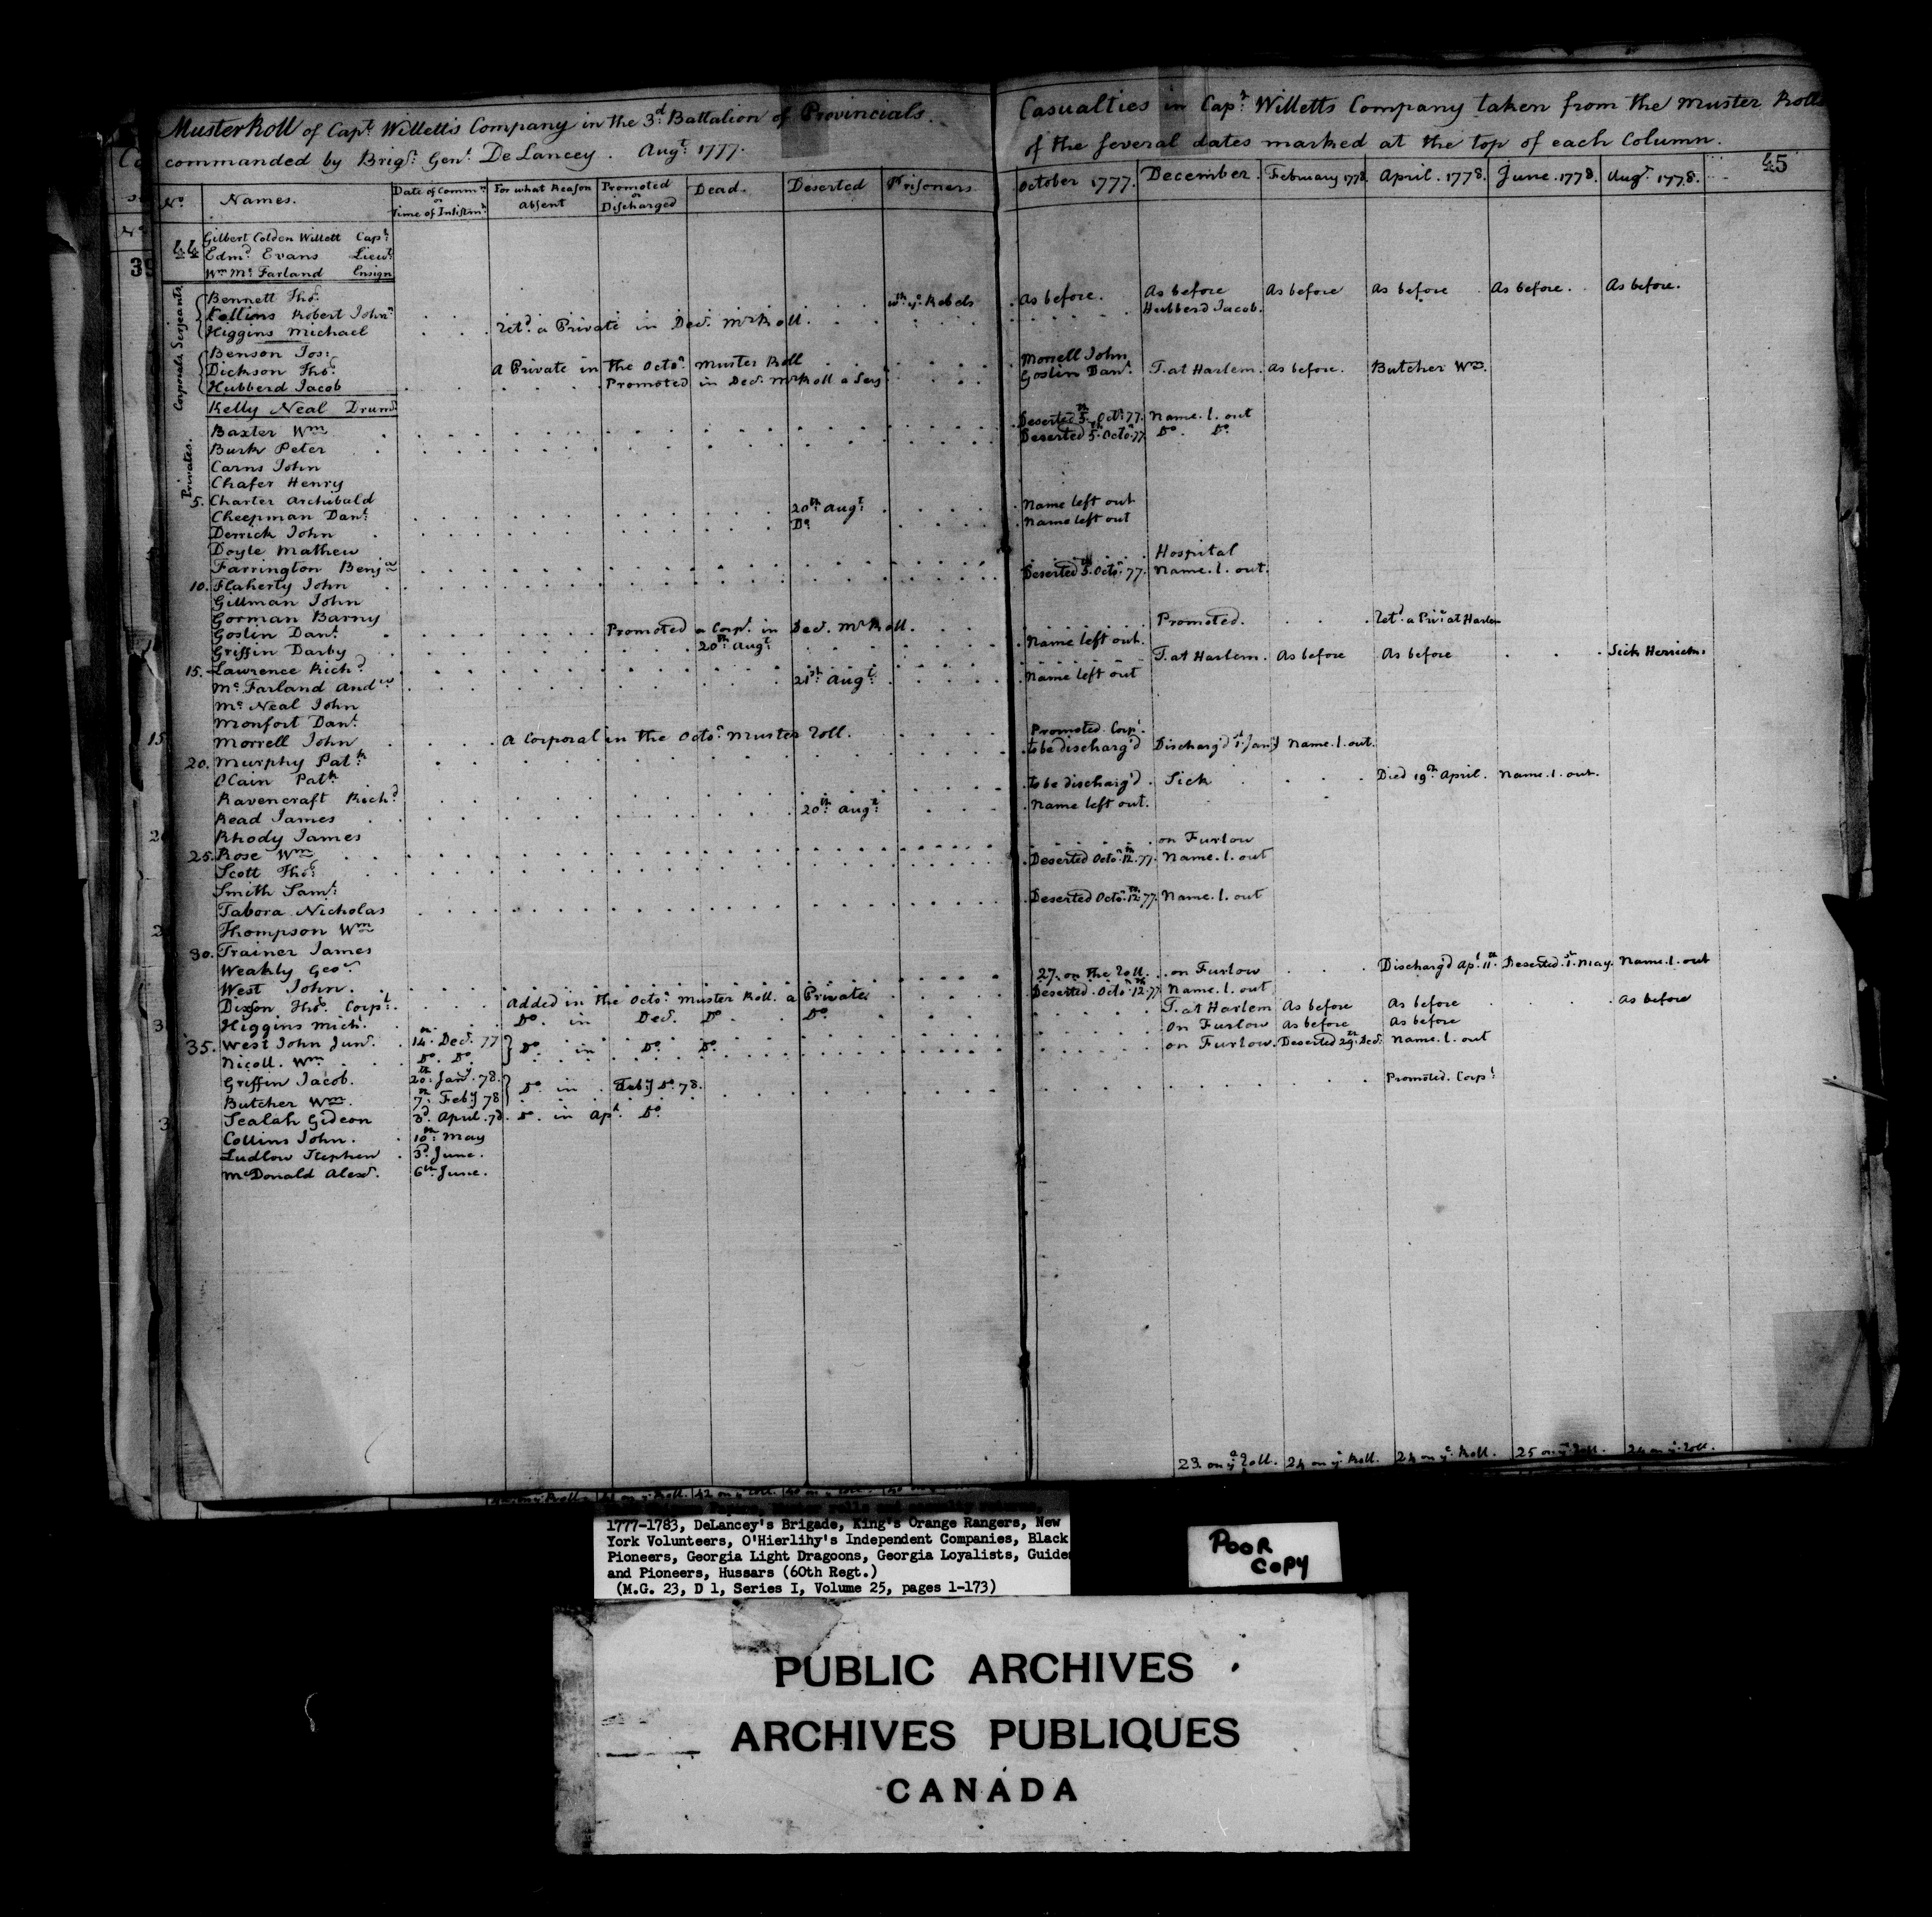 Muster Roll of Capt. Willett's Company in the 3d. Battalion of Provincials.
commanded by Brigr. Genl. De Lancey. Augt. 1777.
No. Names. Date of Commn. or Time of Inlistmt. For what Reason absent Promoted or Discharged Dead. Deserted Prisoners
44 Gilbert Colden Willett Capt.
Edmd. Evans Lieut.
Wm Mc. Farland Ensign
Serjeants
Bennett Thos.
Collins Robert John wth. ye. Rebels
Higgins Michael Retd. a Private in Decr. Mr Roll.
Corporals
Benson Jos:
Dickson Thos. A Private in the Octor. Muster Roll
Hubberd Jacob Promoted in Decr. Mr Roll a Serjt.
Kelly Neal Drumr.
Privates.
Baxter Wm
Burk Peter
Carns John
Chafer Henry
5. Charter Archibald
Cheepman Danl. 20th. Augt.
Derrick John Do.
Doyle Mathew
Farrington Benja
10. Flaherty John
Gillman John
Gorman Barny
Goslin Danl. Promoted a Corpl. in Decr. Mr Roll.
Griffin Darby 20th. Augt.
15. Lawrence Richd.
Mc. Farland Andw 21st. Augt.
Mc. Neal John
Monfort Danl.
Morrell John A Corporal in the Octor. Muster Roll.
20. Murphy Patk.
OCain Patk.
Ravencraft Richd.
Read James 20th Augt.
Rhody James
25. Rose Wm
Scott Thos.
Smith Saml.
Tabora Nicholas
Thompson Wm
30. Trainer James
Weakly Geor.
West John.
Dixson Thos. Corpl. Added in the Octor. Muster Roll. a Private
Higgins Michl. Do. in Decr. Do. Do.
35. West John Junr. 14th. Decr. 77 Do. in Do. Do.
Nicoll. Wm. Do. Do.
Griffin Jacob. 20th. Jany. 78. Do. in Feby. Do. 78.
Butcher Wm. 7th. Feby 78
Sealah Gideon 3d. April. 78. Do. in Apl. Do.
Collins John. 10th. May
Ludlow Stephen 3d. June.
McDonald Alexr. 6th June.
Casualties in Capt. Willetts Company taken from the Muster Rolls
of the several dates marked at the top of each Column.
45
October 1777. December. February 1778. April. 1778. June. 1778. Augt. 1778.
As before. As before As before As before As before. As before.
Hubberd Jacob.
Morrell John
Goslin Danl. T. at Harlem. As before. Butcher Wm.
Deserted 5th. Octr. 77. Name. l. out
Deserted 5th. Octor. 77 Do. Do.
Name left out
Name left out
Hospital
Deserted 5th. Octor. 77. Name. l. out.
Promoted. Retd. a Privt. at Harlem
Name left out.
T. at Harlem. As before As before Sick Herricks.
Name left out
Promoted. Corpl.
to be discharg'd Discharg'd 1st. Jany Name. l. out.
to be discharg'd. Sick Died 19th April. Name. l. out.
Name left out.
on Furlow
Deserted Octor. 12th. 77. Name. l. out
Deserted Octor. 12th. 77. Name. l. out
27. on the Roll. on Furlow Discharg'd Apl. 11th. Deserted. 1st. May. Name. l. out
Deserted. Octor. 12th. 77 Name. l. out
T. at Harlem As before As before As before
on Furlow As before As before
on Furlow. Deserted 29th. Decr. Name. l. out
Promoted. Corpl.
23. on ye Roll. 24 on ye Roll. 24 on ye. Roll. 25 on ye Roll. 24 on ye. Roll.
1777-1783, DeLancey's Brigade, King's Orange Rangers, New
York Volunteers, O'Hierlihy's Independent Companies, Black
Pioneers, Georgia Light Dragoons, Georgia Loyalists, Guides
and Pioneers, Hussars (60th Regt.)
(M.G. 23, D 1, Series I, Volume 25, pages 1-173)
POOR
COPY
PUBLIC ARCHIVES
ARCHIVES PUBLIQUES
CANADA